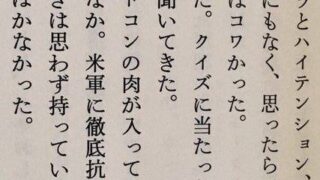 っとハイテンション、
にもなく、思ったら
はコワかった。
た。クイズに当たっ
聞いてきた。
トコンの肉が入って
なか。米軍に徹底抗
きは思わず持ってい
はかなかった。